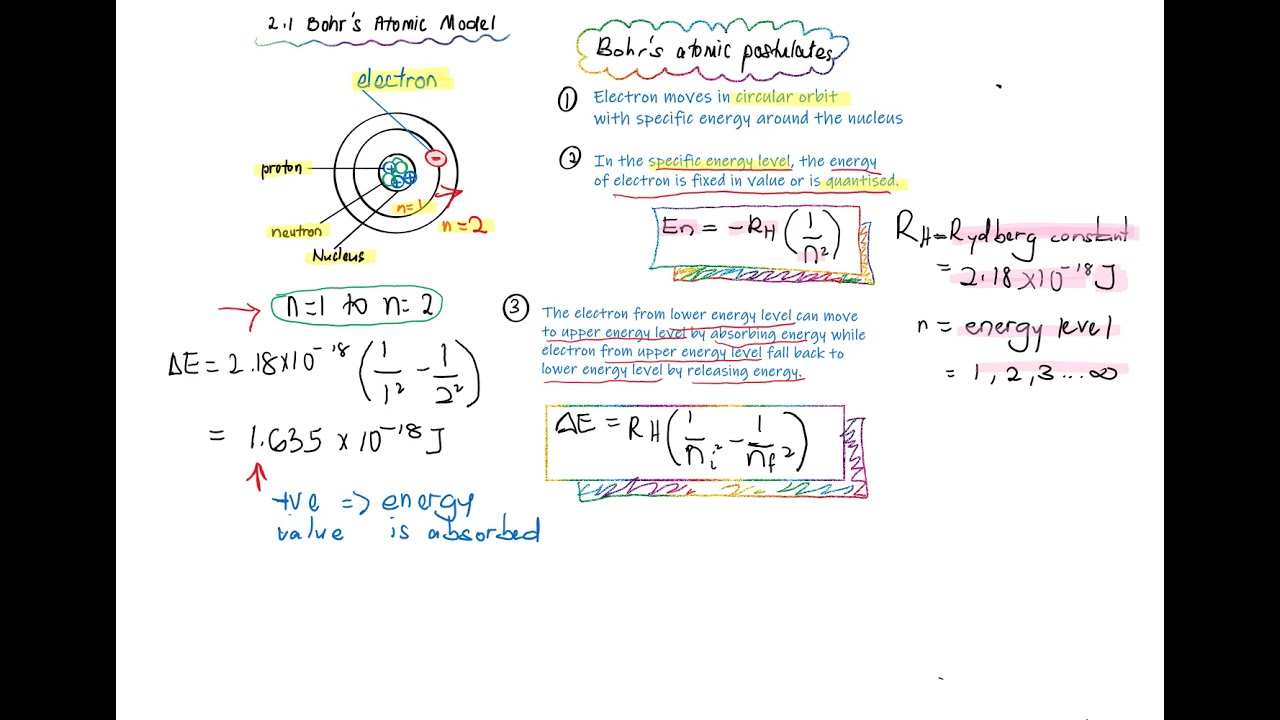 2.1 Bohr's Atomic Model
electron
proton
neutron
Nucleus
n=1
n=2
→ n=1 to n=2
ΔE = 2.18×10⁻¹⁸ (1/1² − 1/2²)
= 1.635 × 10⁻¹⁸ J
+ve => energy
value is absorbed
Bohr's atomic postulates
① Electron moves in circular orbit
with specific energy around the nucleus
② In the specific energy level, the energy
of electron is fixed in value or is quantised.
En = −RH (1/n²)
RH = Rydberg constant
= 2.18×10⁻¹⁸ J
n = energy level
= 1, 2, 3 ... ∞
③ The electron from lower energy level can move
to upper energy level by absorbing energy while
electron from upper energy level fall back to
lower energy level by releasing energy.
ΔE = RH (1/ni² − 1/nf²)